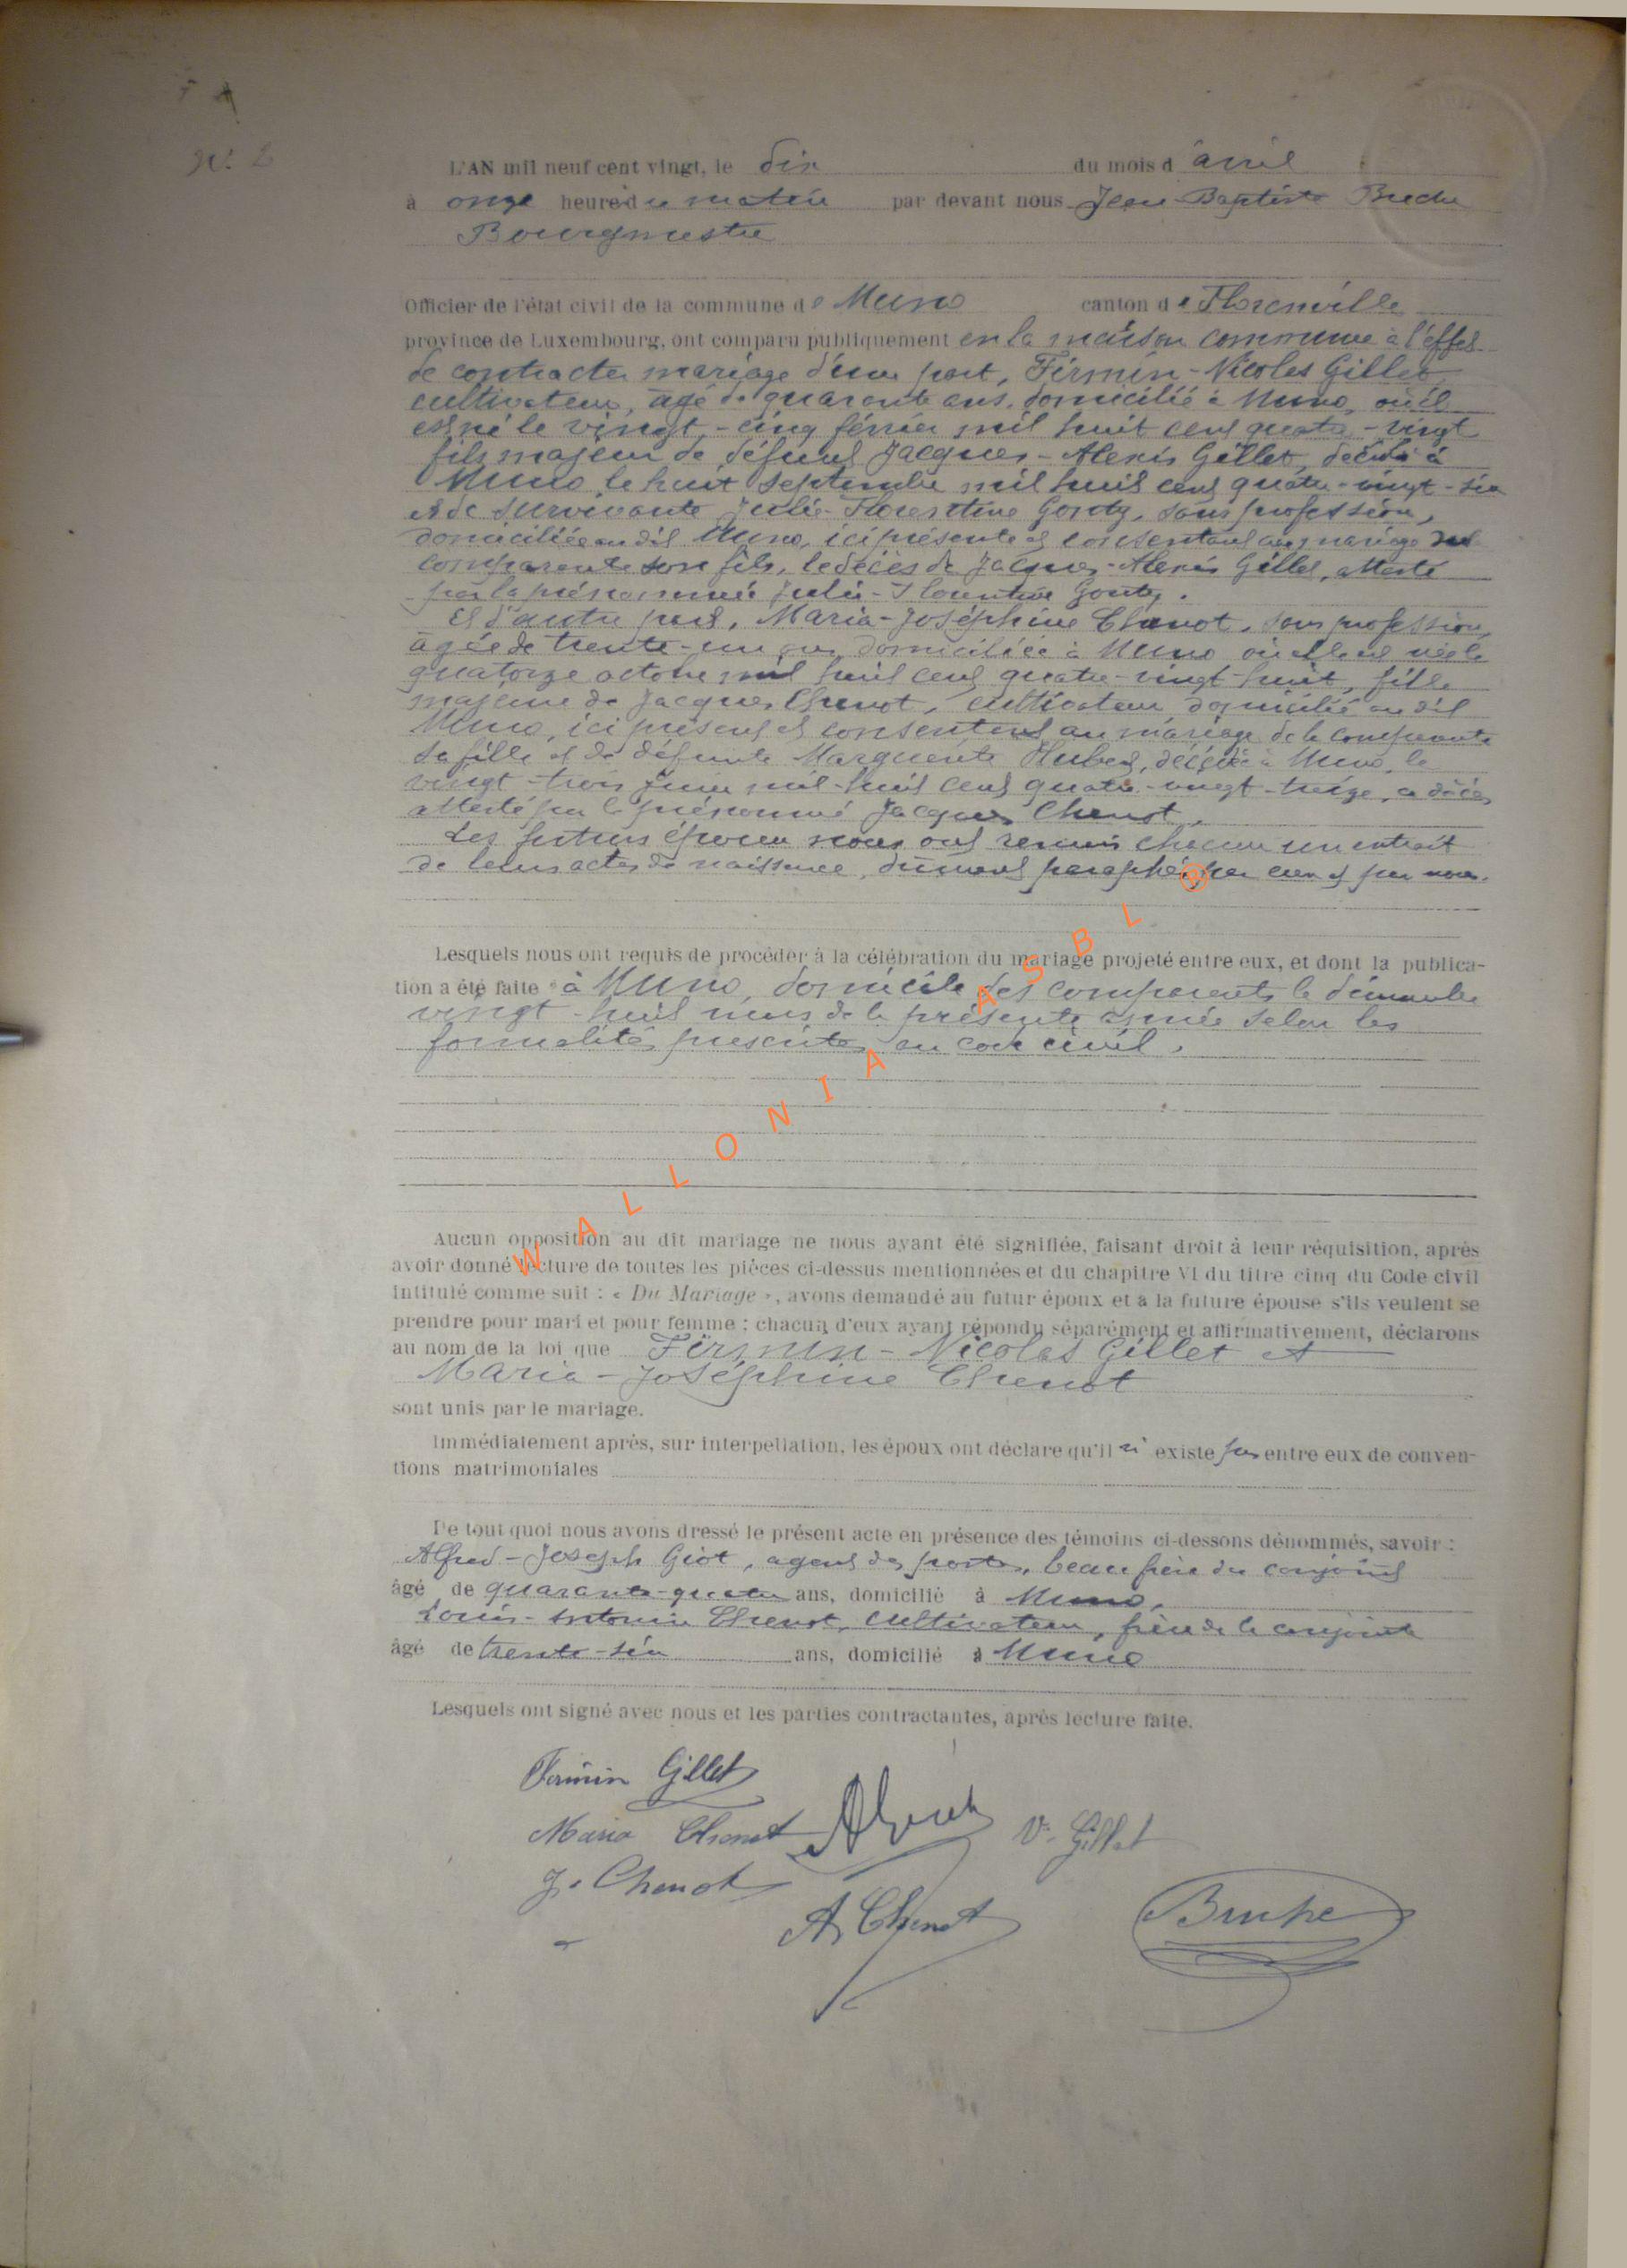 N° 2
L'AN mil neuf cent vingt, le dix du mois d'avril
à onze heures du matin par devant nous Jean-Baptiste
Bourgmestre
Officier de l'état civil de la commune de Muno canton de Florenville
province de Luxembourg, ont comparu publiquement en la maison commune à l'effet
de contracter mariage d'une part, Firmin-Nicolas Gillet
cultivateur, âgé de quarante ans, domicilié à Muno, où il
est né le vingt-cinq février mil huit cent quatre-vingt
fils majeur de défunt Jacques-Alexis Gillet, décédé à
Muno, le huit septembre mil huit cent quatre-vingt-six
et de survivante Julie-Florentine Gouty, sans profession,
domiciliée au dit Muno, ici présente et consentant au mariage
comparante son fils, le décès de Jacques-Alexis Gillet, attesté
par la prénommée Julie-Florentine Gouty.
Et d'autre part, Maria-Joséphine Chenot, sans profession,
âgée de trente-un ans domiciliée à Muno où elle est née le
quatorze octobre mil huit cent quatre-vingt-huit, fille
majeure de Jacques Chenot, cultivateur domicilié au dit
Muno, ici présent et consentant au mariage de la comparante
sa fille et de défunte Marguerite Hubert, décédée à Muno, le
vingt-trois juin mil-huit cent quatre-vingt-treize, ce décès
attesté par le prénommé Jacques Chenot.
Les futurs époux nous ont remis chacun un extrait
de leurs actes de naissance, dûment paraphés par eux et par nous.
Lesquels nous ont requis de procéder à la célébration du mariage projeté entre eux, et dont la publica-
tion a été faite à Muno, domicile des comparents le dimanche
vingt-huit mars de la présente année selon les
formalités prescrites au code civil.
WALLONIA ASBL ®
Aucun opposition au dit mariage ne nous ayant été signifiée, faisant droit à leur réquisition, après
avoir donné lecture de toutes les pièces ci-dessus mentionnées et du chapitre VI du titre cinq du Code civil
intitulé comme suit : « Du Mariage », avons demandé au futur époux et à la future épouse s'ils veulent se
prendre pour mari et pour femme ; chacun d'eux ayant répondu séparément et affirmativement, déclarons
au nom de la loi que Firmin-Nicolas Gillet et
Maria-Joséphine Chenot
sont unis par le mariage.
Immédiatement après, sur interpellation, les époux ont déclaré qu'il n'existe pas entre eux de conven-
tions matrimoniales
De tout quoi nous avons dressé le présent acte en présence des témoins ci-dessons dénommés, savoir :
Alfred-Joseph Giot, agent des postes, beau frère du conjoint
âgé de quarante-quatre ans, domicilié à Muno,
Louis-Antonin Chenot, cultivateur, frère de la conjointe
âgé de trente-six ans, domicilié à Muno
Lesquels ont signé avec nous et les parties contractantes, après lecture faite.
Firmin Gillet
Maria Chenot V. Gillet
J. Chenot
A. Chenot